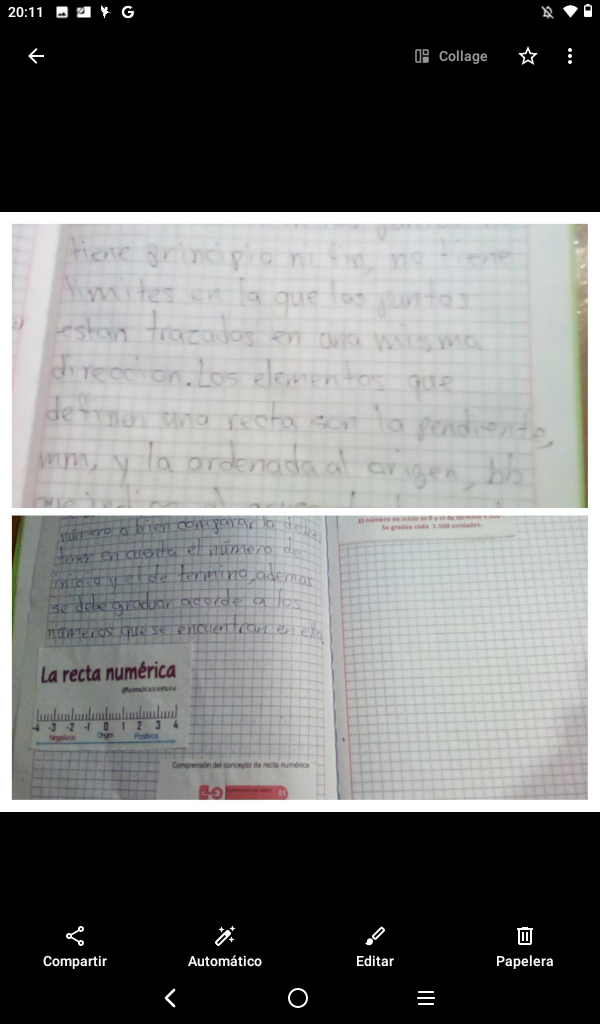 20:11
Collage
tiene principio ni fin, no tiene
limites en la que los puntos
estan trazados en una misma
direccion. Los elementos que
definen una recta son la pendiente,
mm, y la ordenada al origen, bb
número o bien comparar la debe
tener en cuenta el número de
inicio y el de termino, ademas
se debe graduar acorde a los
números que se encuentran en ella
La recta numérica
-4 -3 -2 -1 0 1 2 3 4
Negativos Origen Positivos
Comprensión del concepto de recta numérica
51
El número de inicio es 0 y el de término
Se gradúa cada 1.500 unidades.
Compartir
Automático
Editar
Papelera